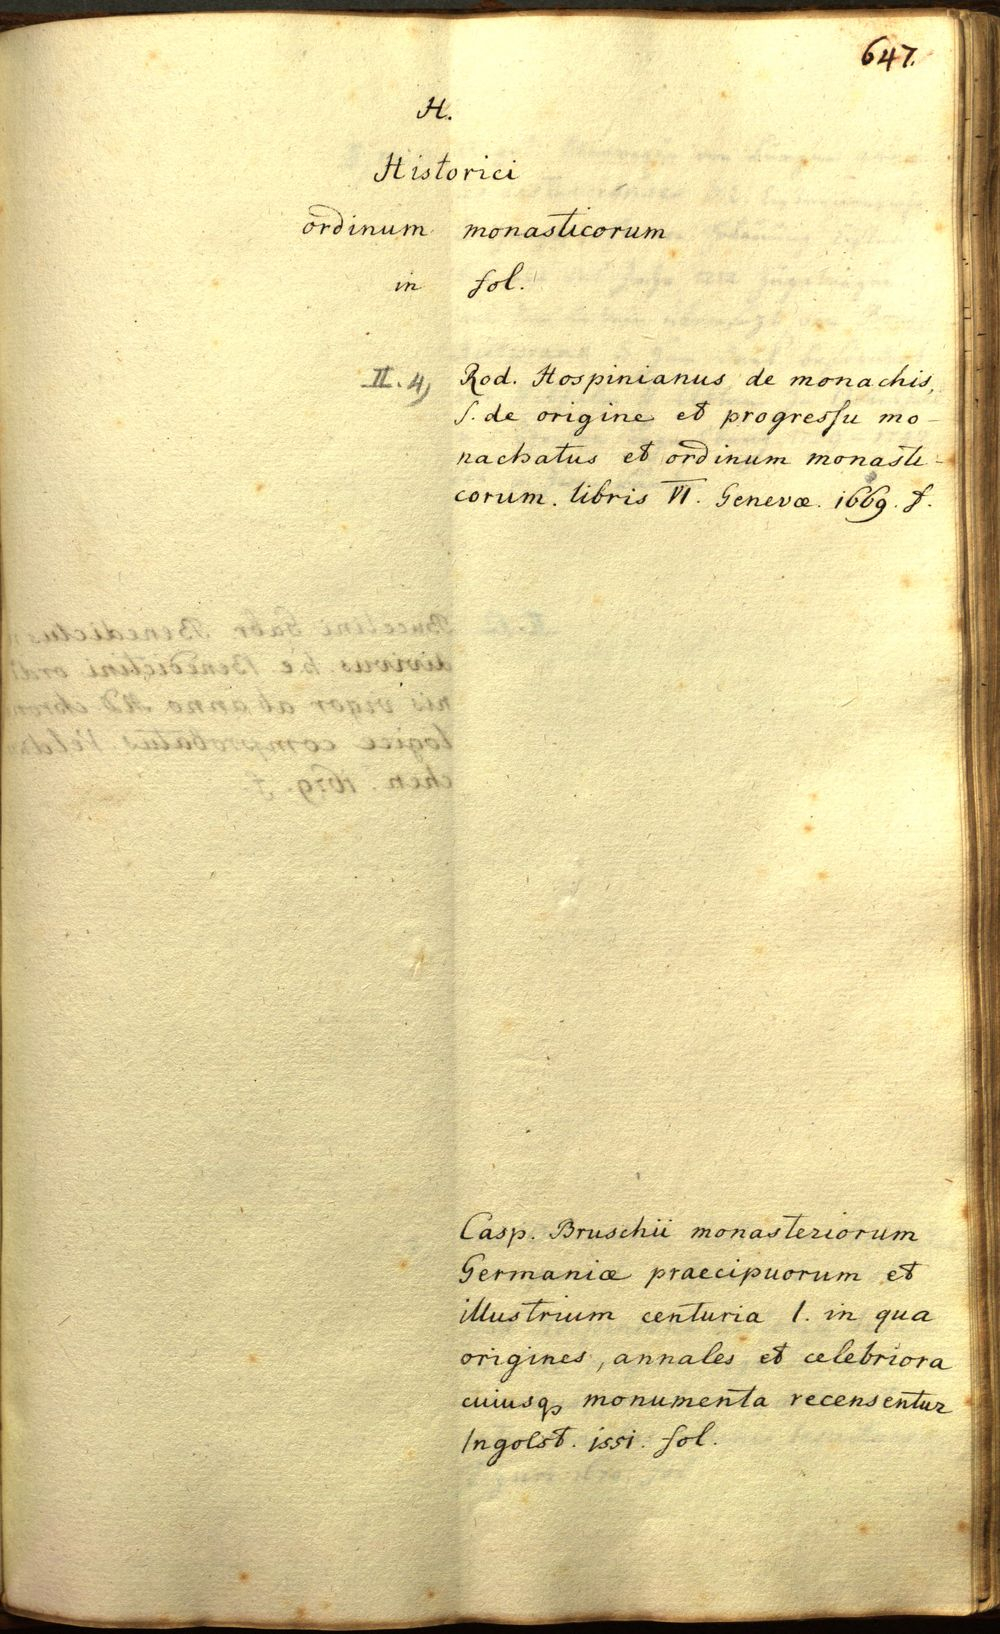 647.
H.
Historici
ordinum monasticorum
in fol.
II. 4) Rod. Hospinianus de monachis,
s. de origine et progressu mo-
nachatus et ordinum monasti-
corum. libris VI. Genevæ. 1669. f.
Casp. Bruschii monasteriorum
Germaniæ praecipuorum et
illustrium centuria 1. in qua
origines, annales et celebriora
cuiusq₃ monumenta recensentur
Ingolst. 1551. fol.